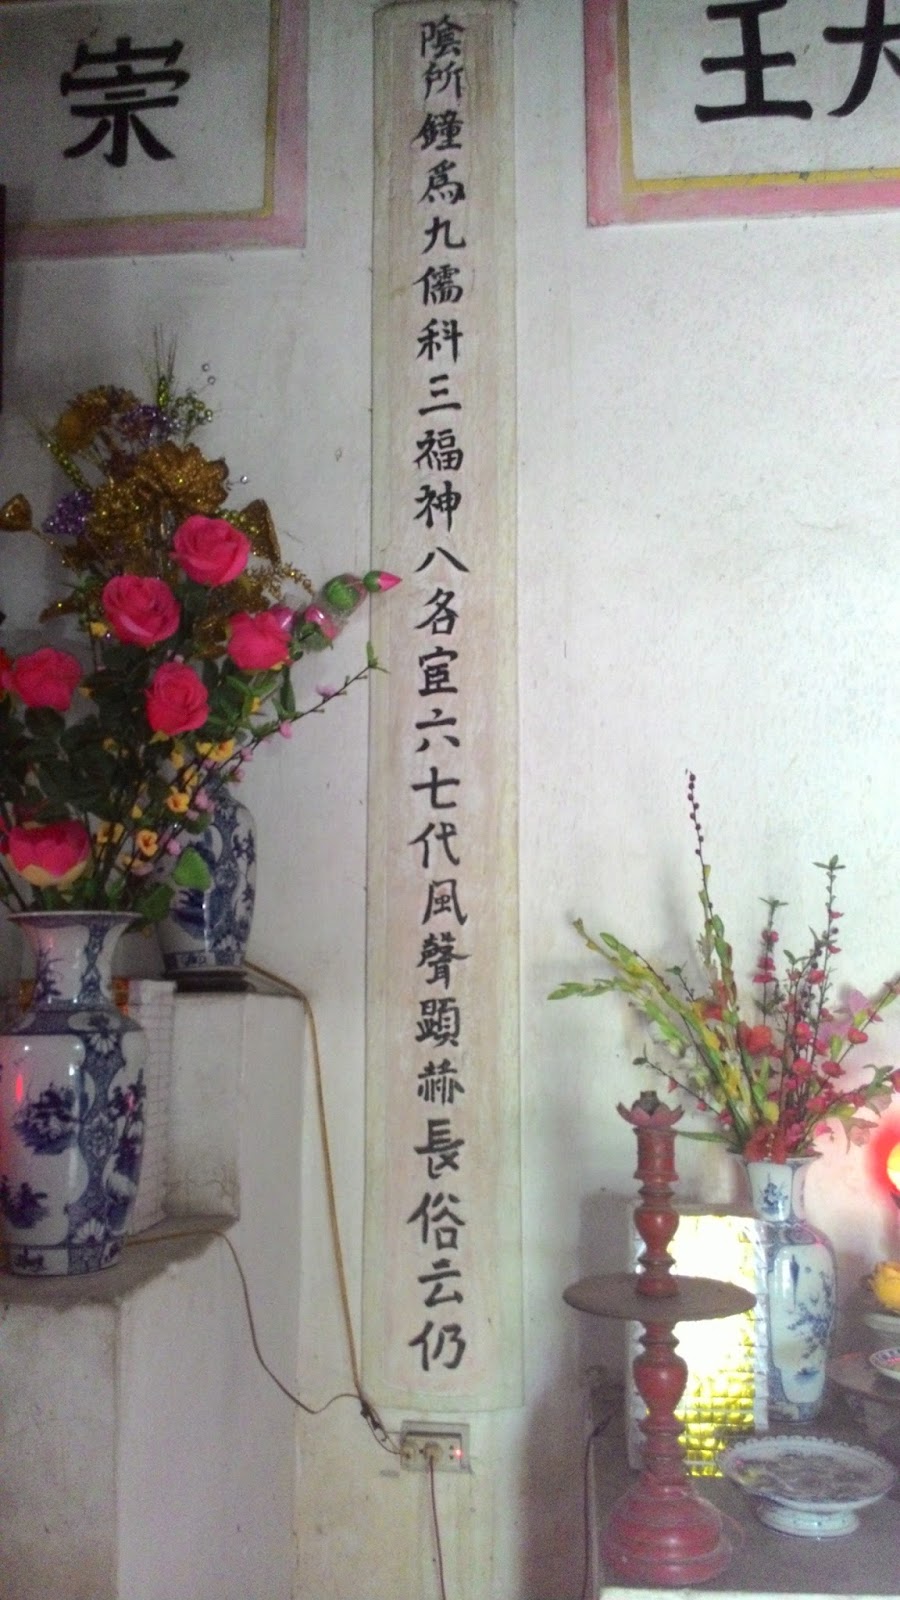 大王
陰所鐘爲九儒科三福神八名宦六七代風聲顕赫長俗云仍
崇